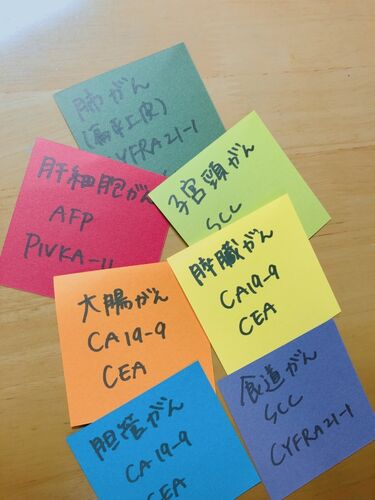 肺がん
(扁平上皮)
CYFRA21-1
肝細胞がん
AFP
PIVKA-II
子宮頸がん
SCC
膵臓がん
CA19-9
CEA
大腸がん
CA19-9
CEA
食道がん
SCC
CYFRA21-1
胆管がん
CA19-9
CEA